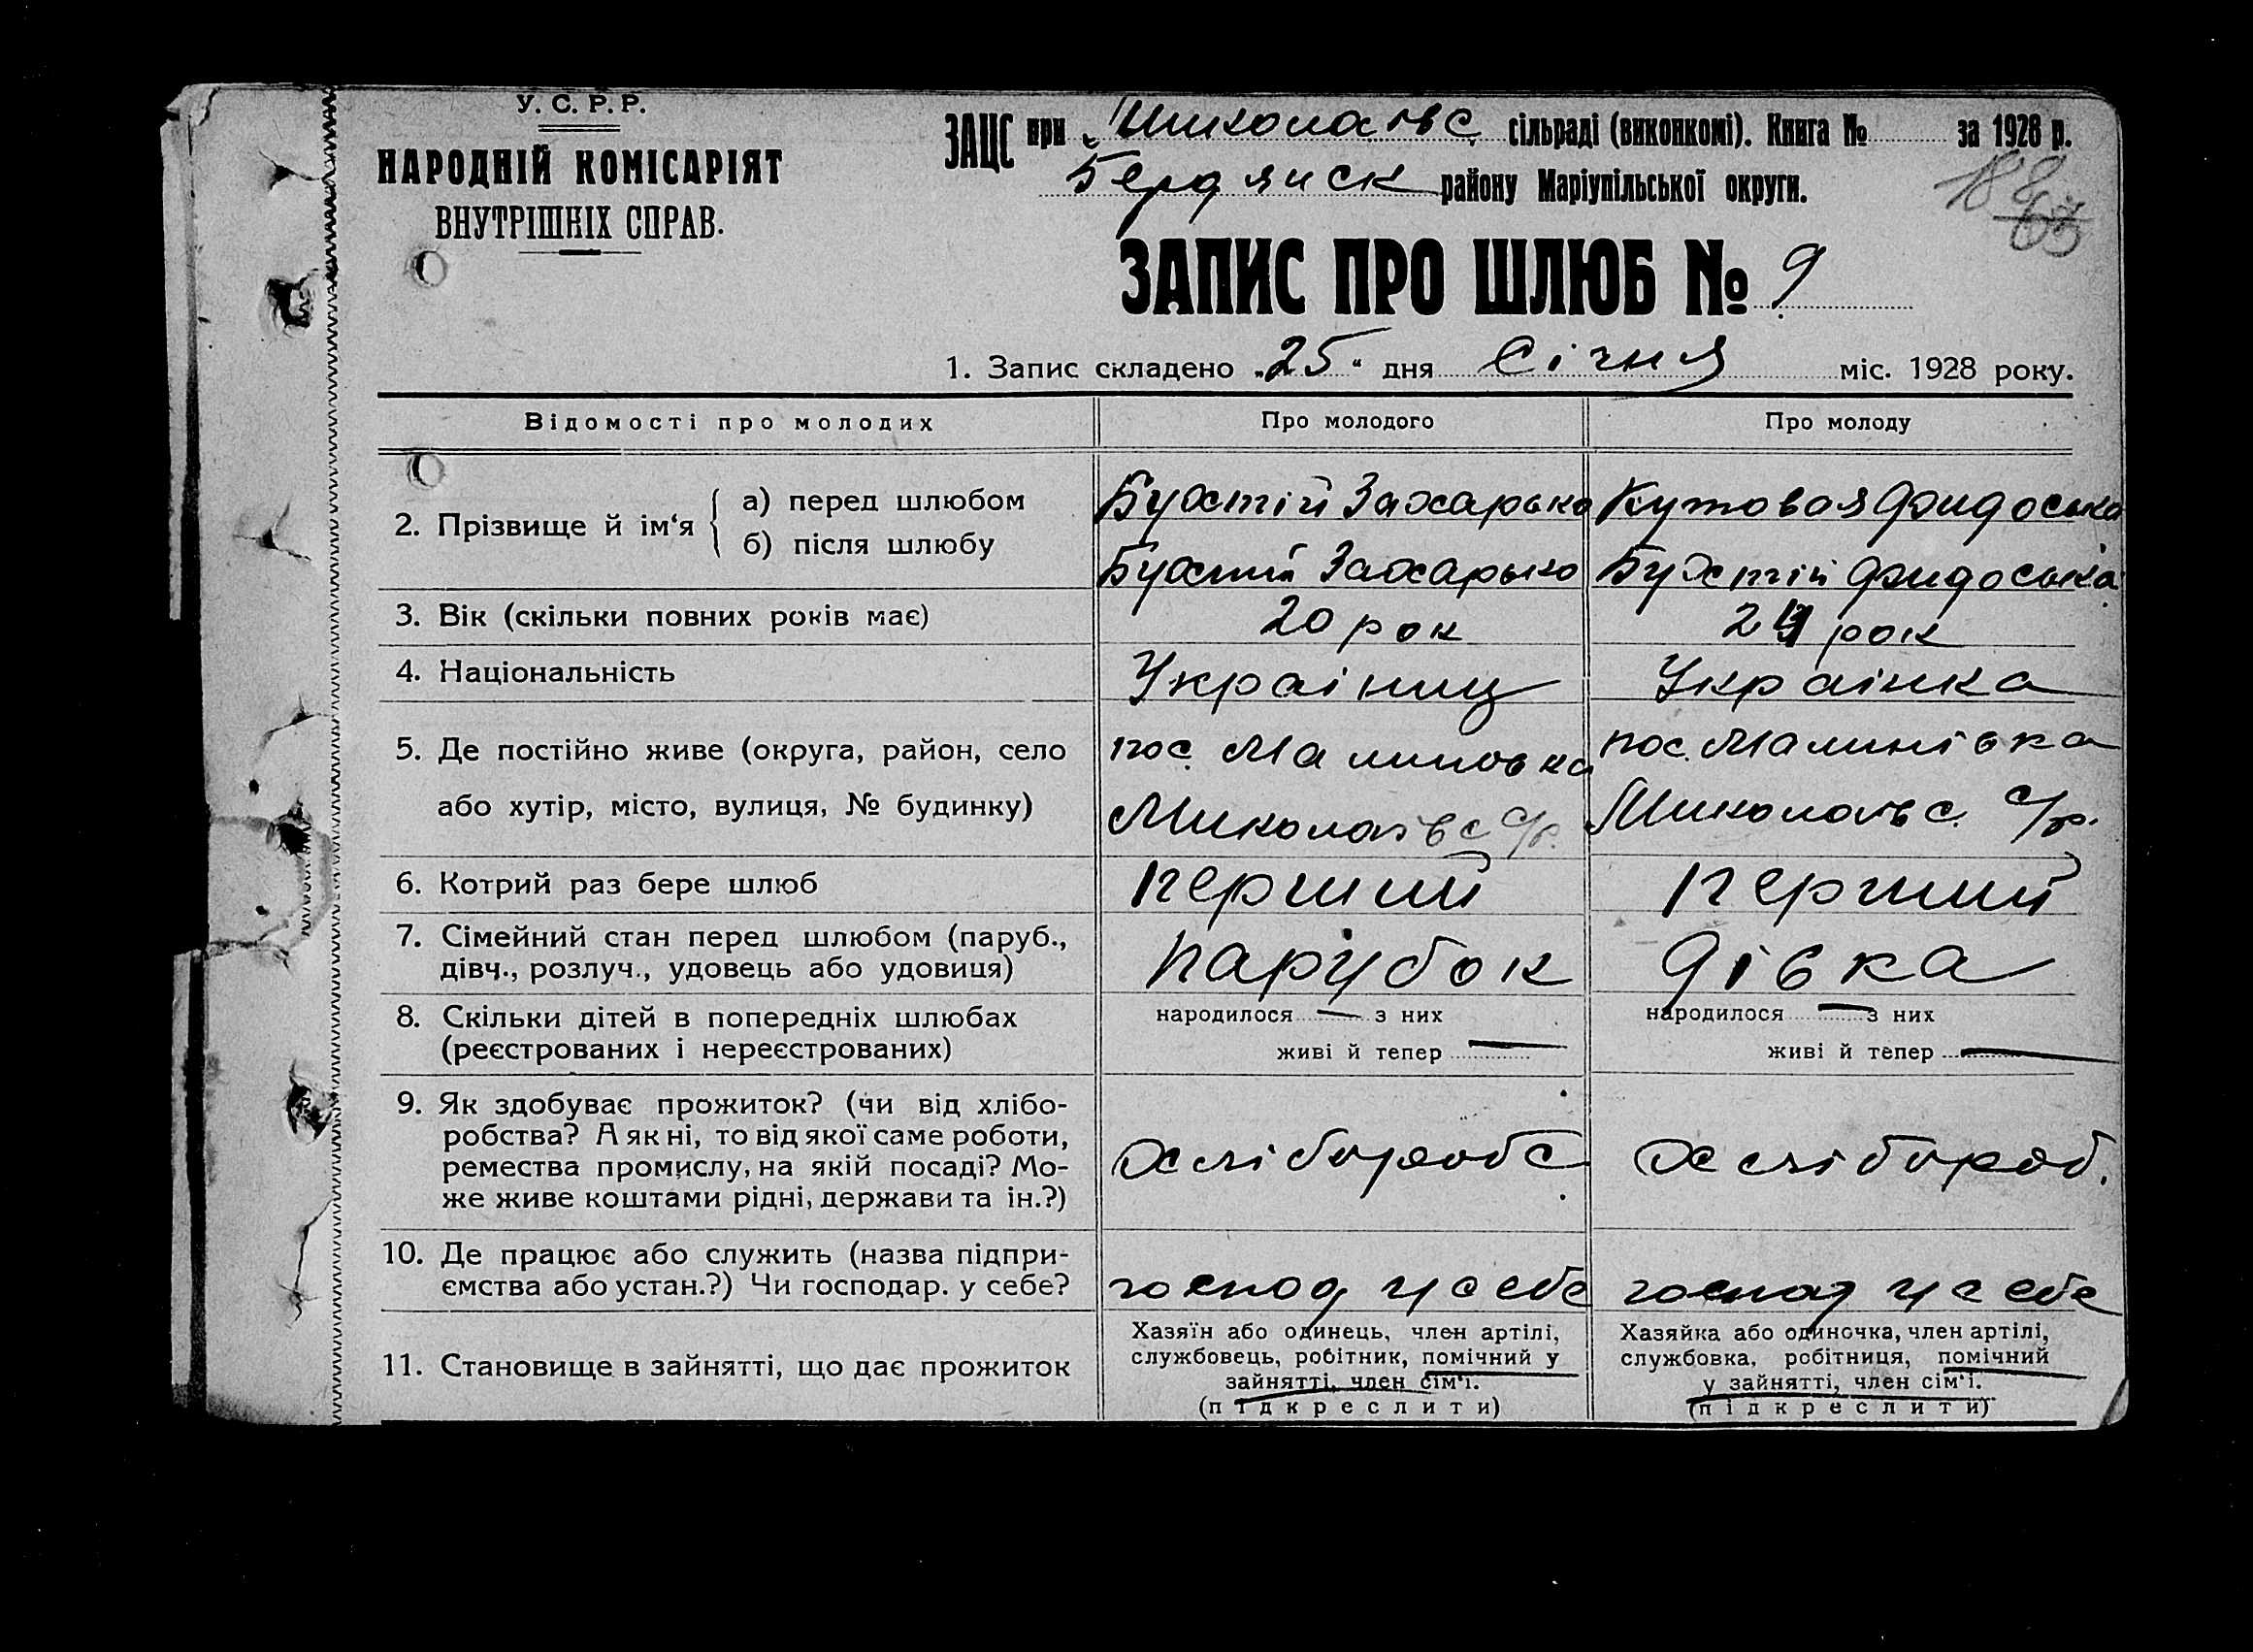 У. С. Р. Р.
НАРОДНІЙ КОМІСАРІЯТ
ВНУТРІШНІХ СПРАВ.
ЗАЦС при Миколаївс сільраді (виконкомі). Книга № за 1928 р.
Бердянск району Маріупільської округи.
188
63
ЗАПИС ПРО ШЛЮБ № 9
1. Запис складено „25" дня Січня міс. 1928 року.
Відомості про молодих
Про молодого
Про молоду
2. Прізвище й ім'я { а) перед шлюбом
б) після шлюбу
Бухтій Захарько
Кутовая Фидоська
Бухтий Захарько
Бухтій Фидоська
3. Вік (скільки повних років має)
20 рок
24 рок
4. Національність
Украінец
Украінка
5. Де постійно живе (округа, район, село
або хутір, місто, вулиця, № будинку)
пос. Малиновка
Миколаївс с/р.
пос. Малинівка
Миколаївс. с/р.
6. Котрий раз бере шлюб
перший
перший
7. Сімейний стан перед шлюбом (паруб.,
дівч., розлуч., удовець або удовиця)
парубок
дівка
8. Скільки дітей в попередніх шлюбах
(реєстрованих і нереєстрованих)
народилося — з них
живі й тепер —
народилося — з них
живі й тепер —
9. Як здобуває прожиток? (чи від хлібо-
робства? А як ні, то від якої саме роботи,
ремества промислу, на якій посаді? Мо-
же живе коштами рідні, держави та ін.?)
хліборобс
хлібороб.
10. Де працює або служить (назва підпри-
ємства або устан.?) Чи господар. у себе?
господ у себе
господ у себе
11. Становище в зайнятті, що дає прожиток
Хазяїн або одинець, член артілі,
службовець, робітник, помічний у
зайнятті, член сім'ї.
(підкреслити)
Хазяйка або одиночка, член артілі,
службовка, робітниця, помічний
у зайнятті, член сім'ї.
(підкреслити)